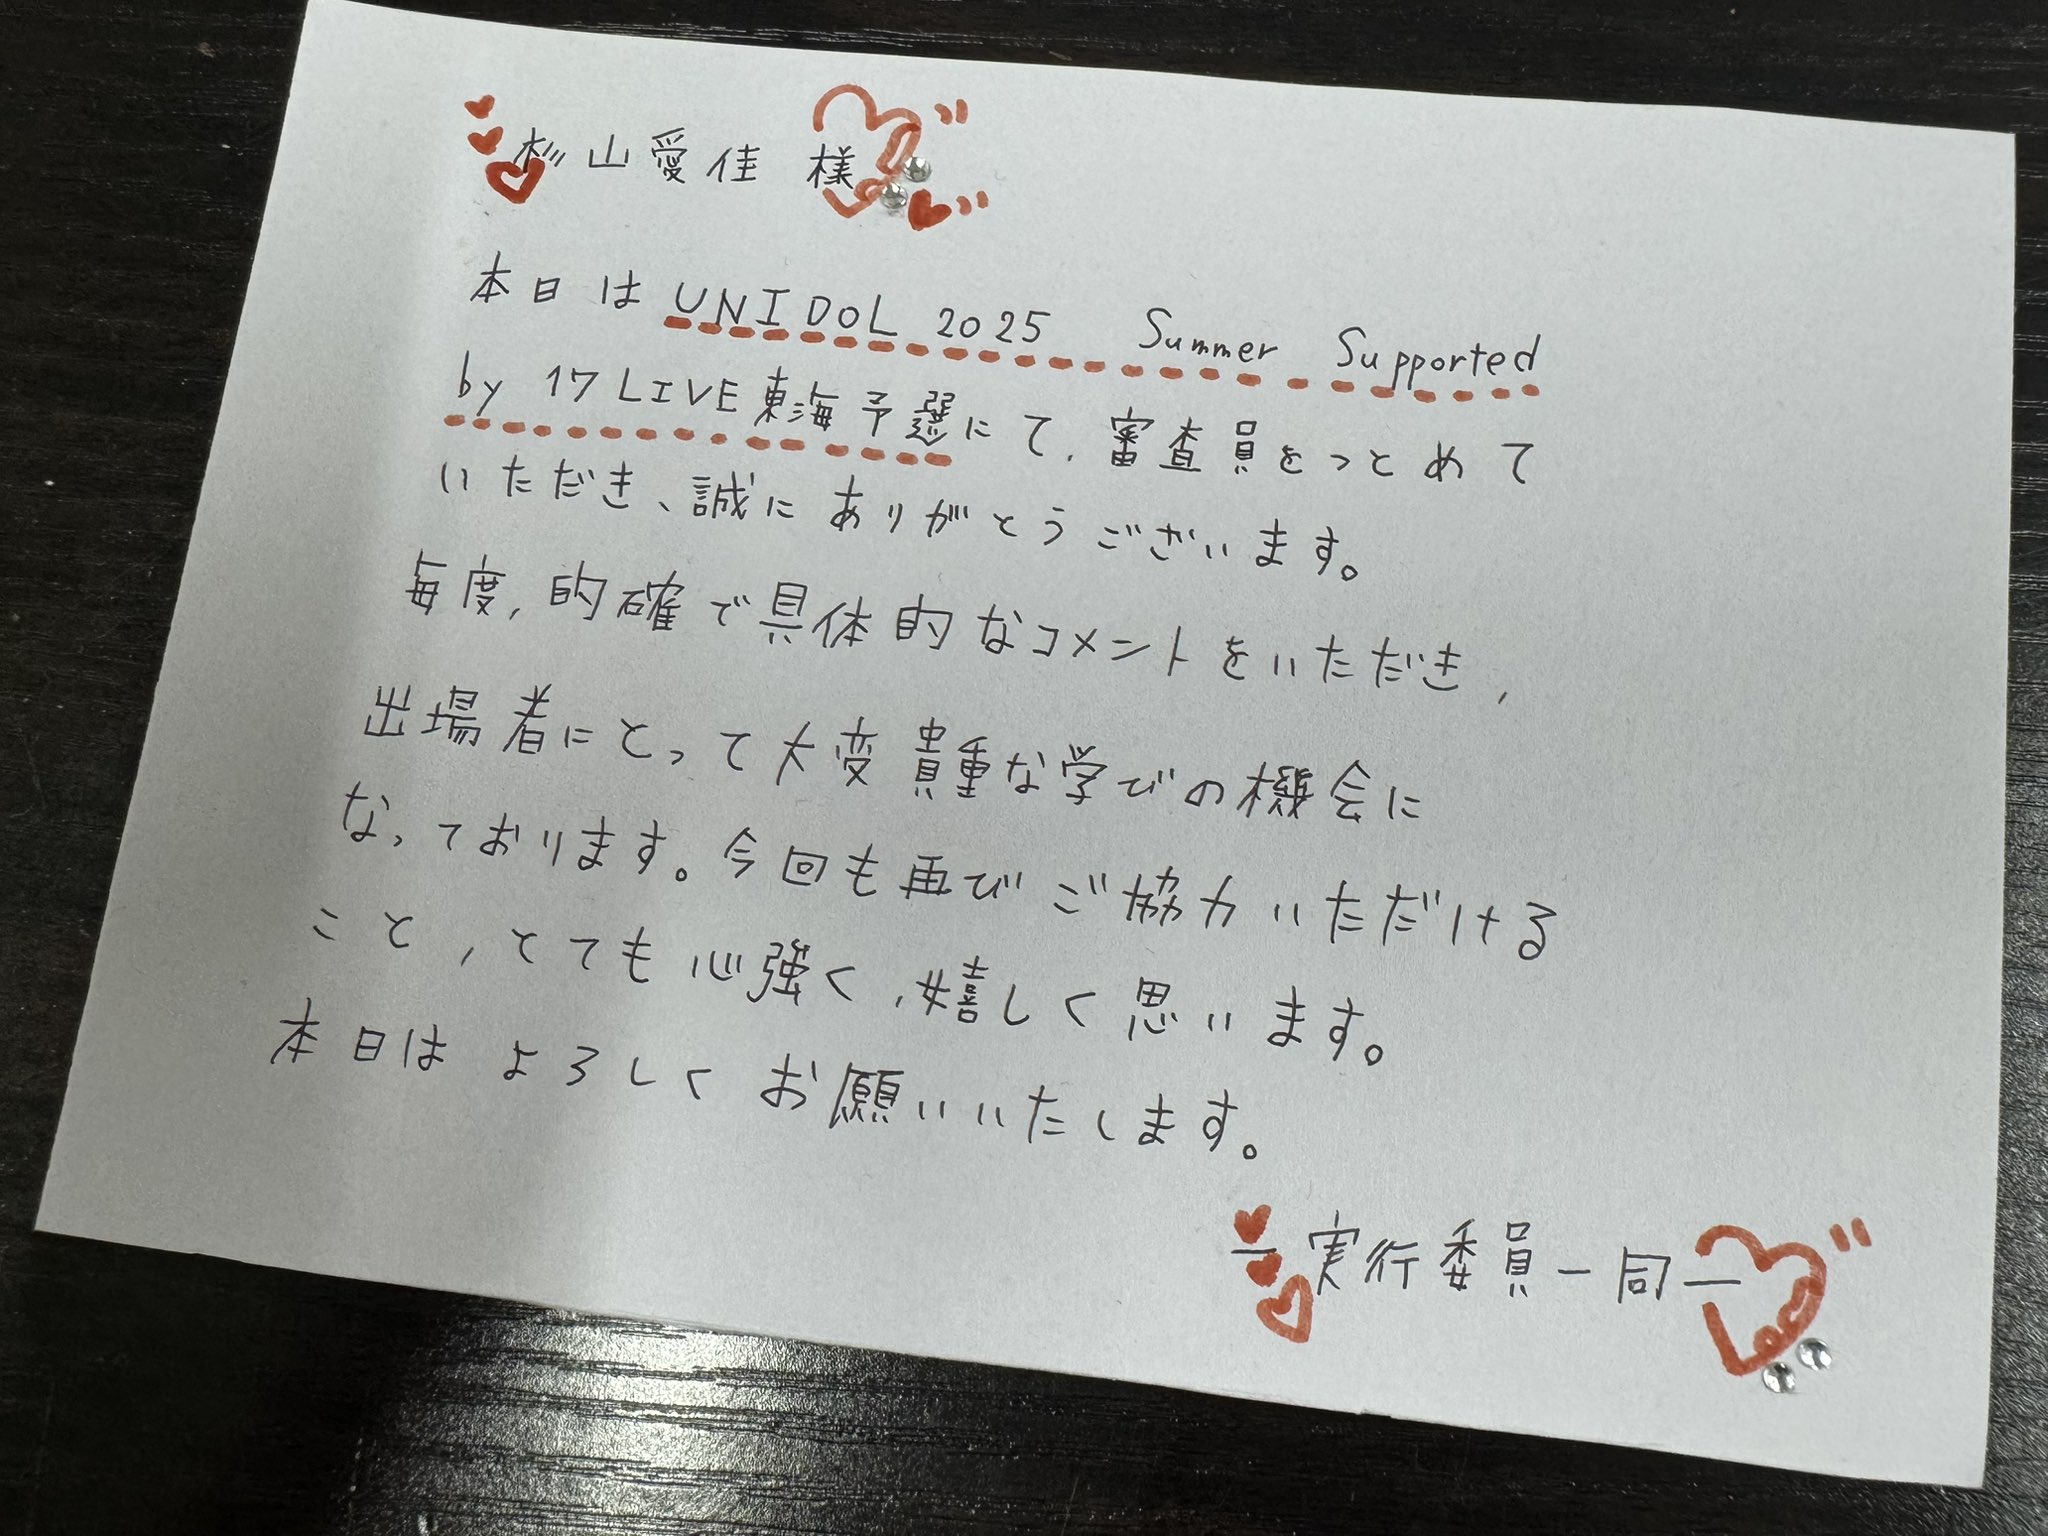 杉山愛佳 様
本日は UNIDOL 2025 Summer Supported
by 17LIVE東海予選にて、審査員をつとめて
いただき、誠にありがとうございます。
毎度、的確で具体的なコメントをいただき、
出場者にとって大変貴重な学びの機会に
なっております。今回も再びご協力いただける
こと、とても心強く、嬉しく思います。
本日は よろしくお願いいたします。
ー実行委員一同ー